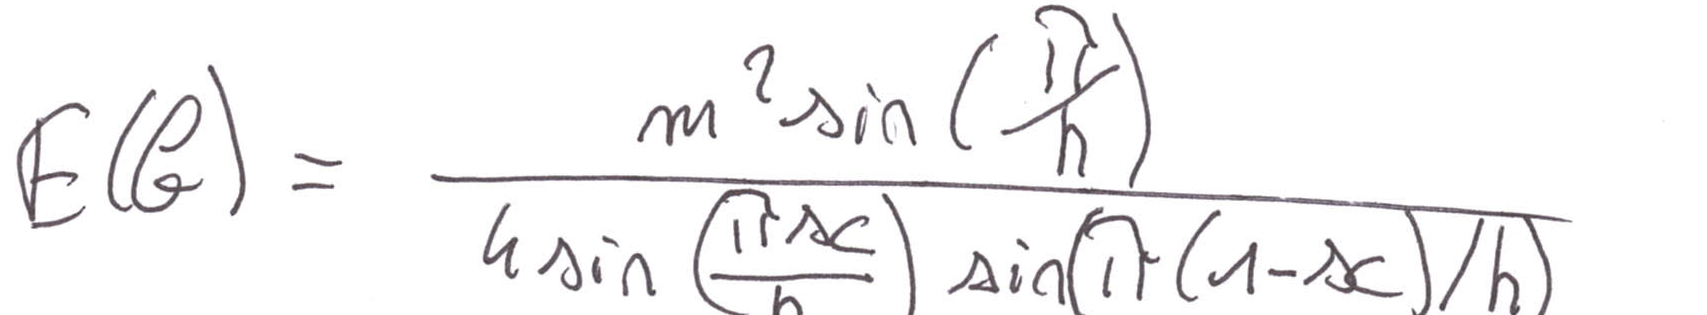 E(G) = m² sin(π/h) / 4 sin(πx/h) sin(π(1-x)/h)